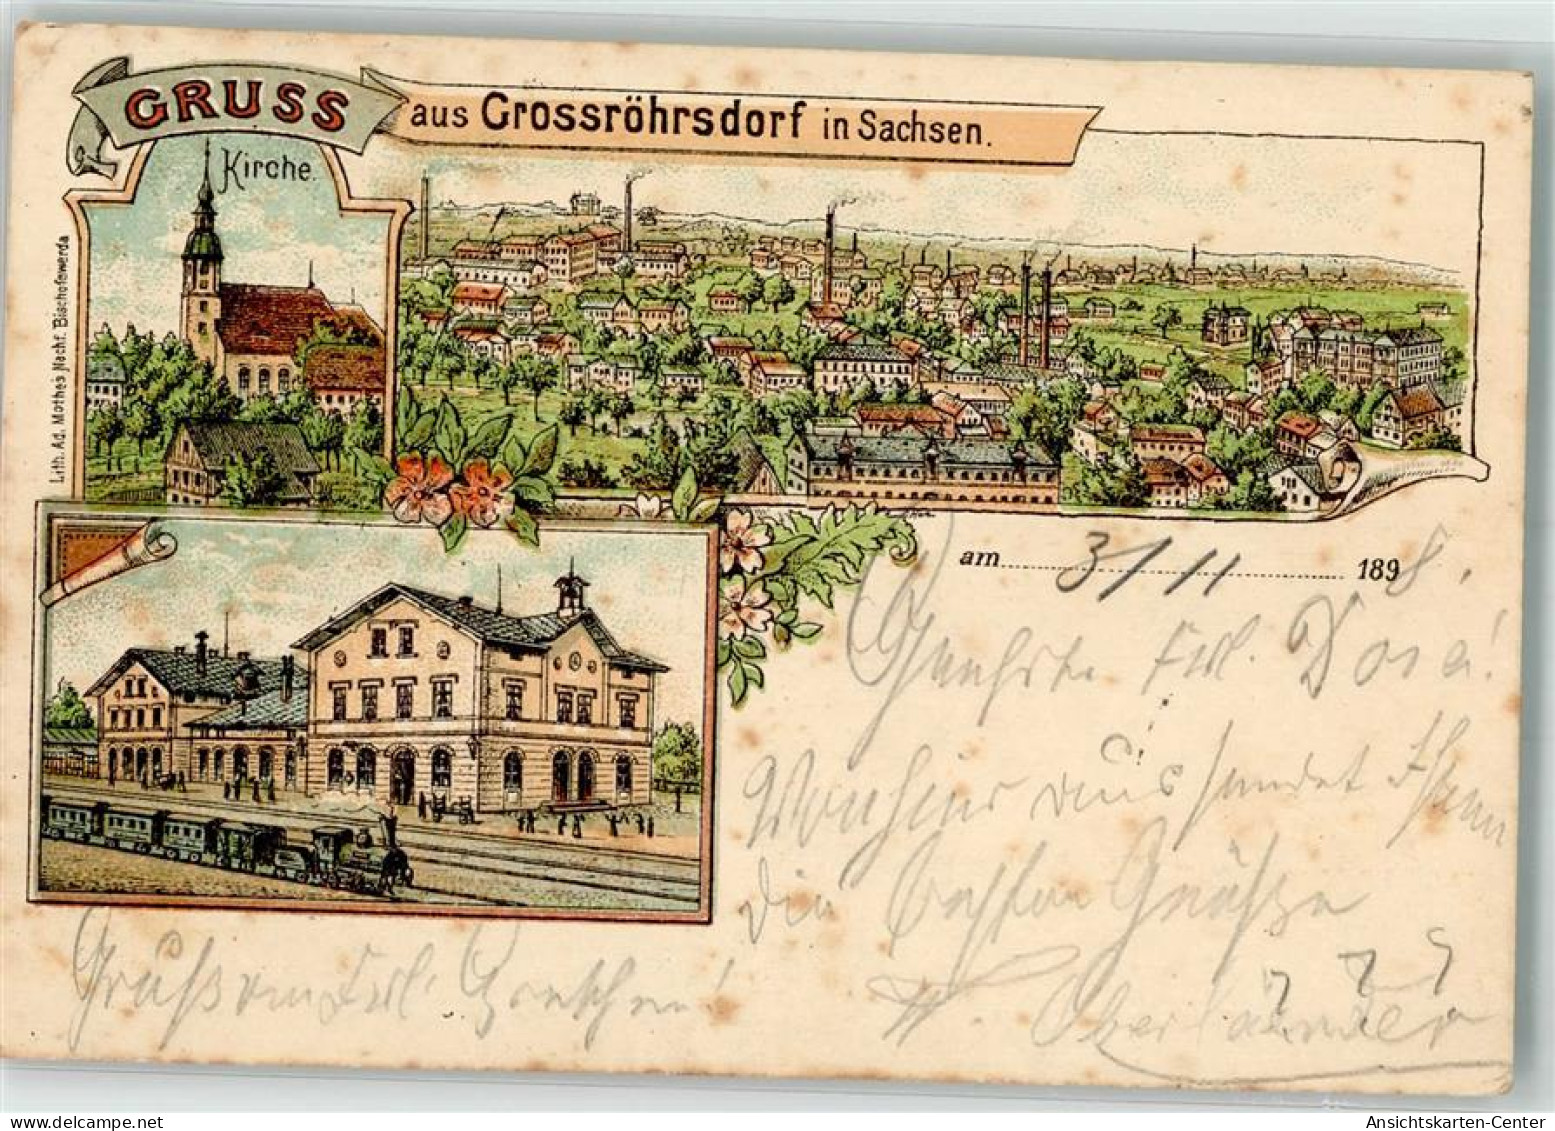 GRUSS
aus Grossröhrsdorf in Sachsen.
Kirche.
Lith. Ad. Mathes Nachf. Bischofswerda
am 3/11 1898.
Geehrte Frl. Dora!
aus sendet Ihnen
die besten Grüße
Oberländer
Gruß an Frl. Gretchen!
www.delcampe.net
Ansichtskarten-Center